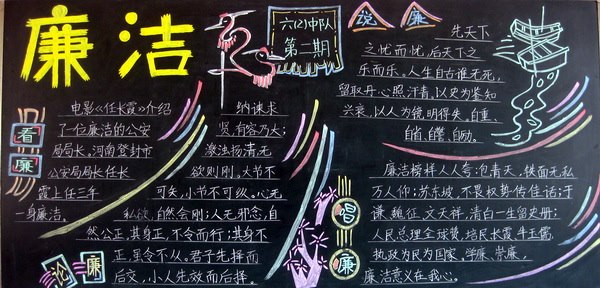 廉洁
六(2)中队
第二期
看廉
电影《任长霞》介绍
了一位廉洁的公安
局局长。河南登封市
公安局局长任长
霞上任三年
一身廉洁。
论廉
纳谏求
贤,有容乃大;
激浊扬清无
欲则刚。大节不
可失,小节不可纵。心无
私欲,自然会刚;人无邪念,自
然公正。其身正,不令而行;其身不
正,虽令不从。君子先择而
后交,小人先效而后择。
说廉
先天下
之忧而忧,后天下之
乐而乐。人生自古谁无死,
留取丹心照汗青。以史为鉴知
兴衰,以人为镜,明得失。自重、
自省、自警、自励。
倡廉
廉洁榜样人人夸:包青天,铁面无私
万人仰;苏东坡,不畏权势传佳话;于
谦、魏征、文天祥,清白一生留史册;
人民总理全球赞,培民长霞牛玉儒,
执政为民为国家,学廉,崇廉,
廉洁意义在我心。